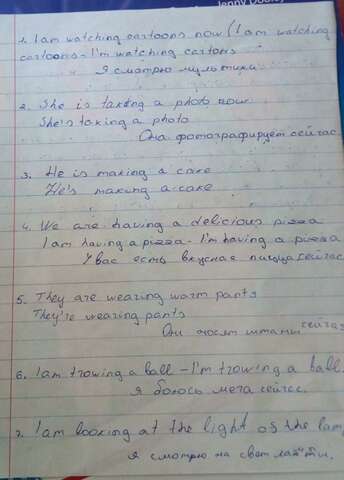 Jenny Dooley
1. I am watching cartoons now (I am watching
cartoons - I'm watching cartons
Я смотрю мультики
2. She is taking a photo now.
She's taking a photo
Она фотографирует сейчас.
3. He is making a cake
He's making a cake
4. We are having a delicious pizza
I am having a pizza - I'm having a pizza
У вас есть вкусная пицца сейчас
5. They are wearing warm pants
They're wearing pants
Они носят штаны сейчас
6. I am trowing a ball - I'm trowing a ball.
я мега сейчас.
7. I am looking at the light of the lamp
я смотрю на свет